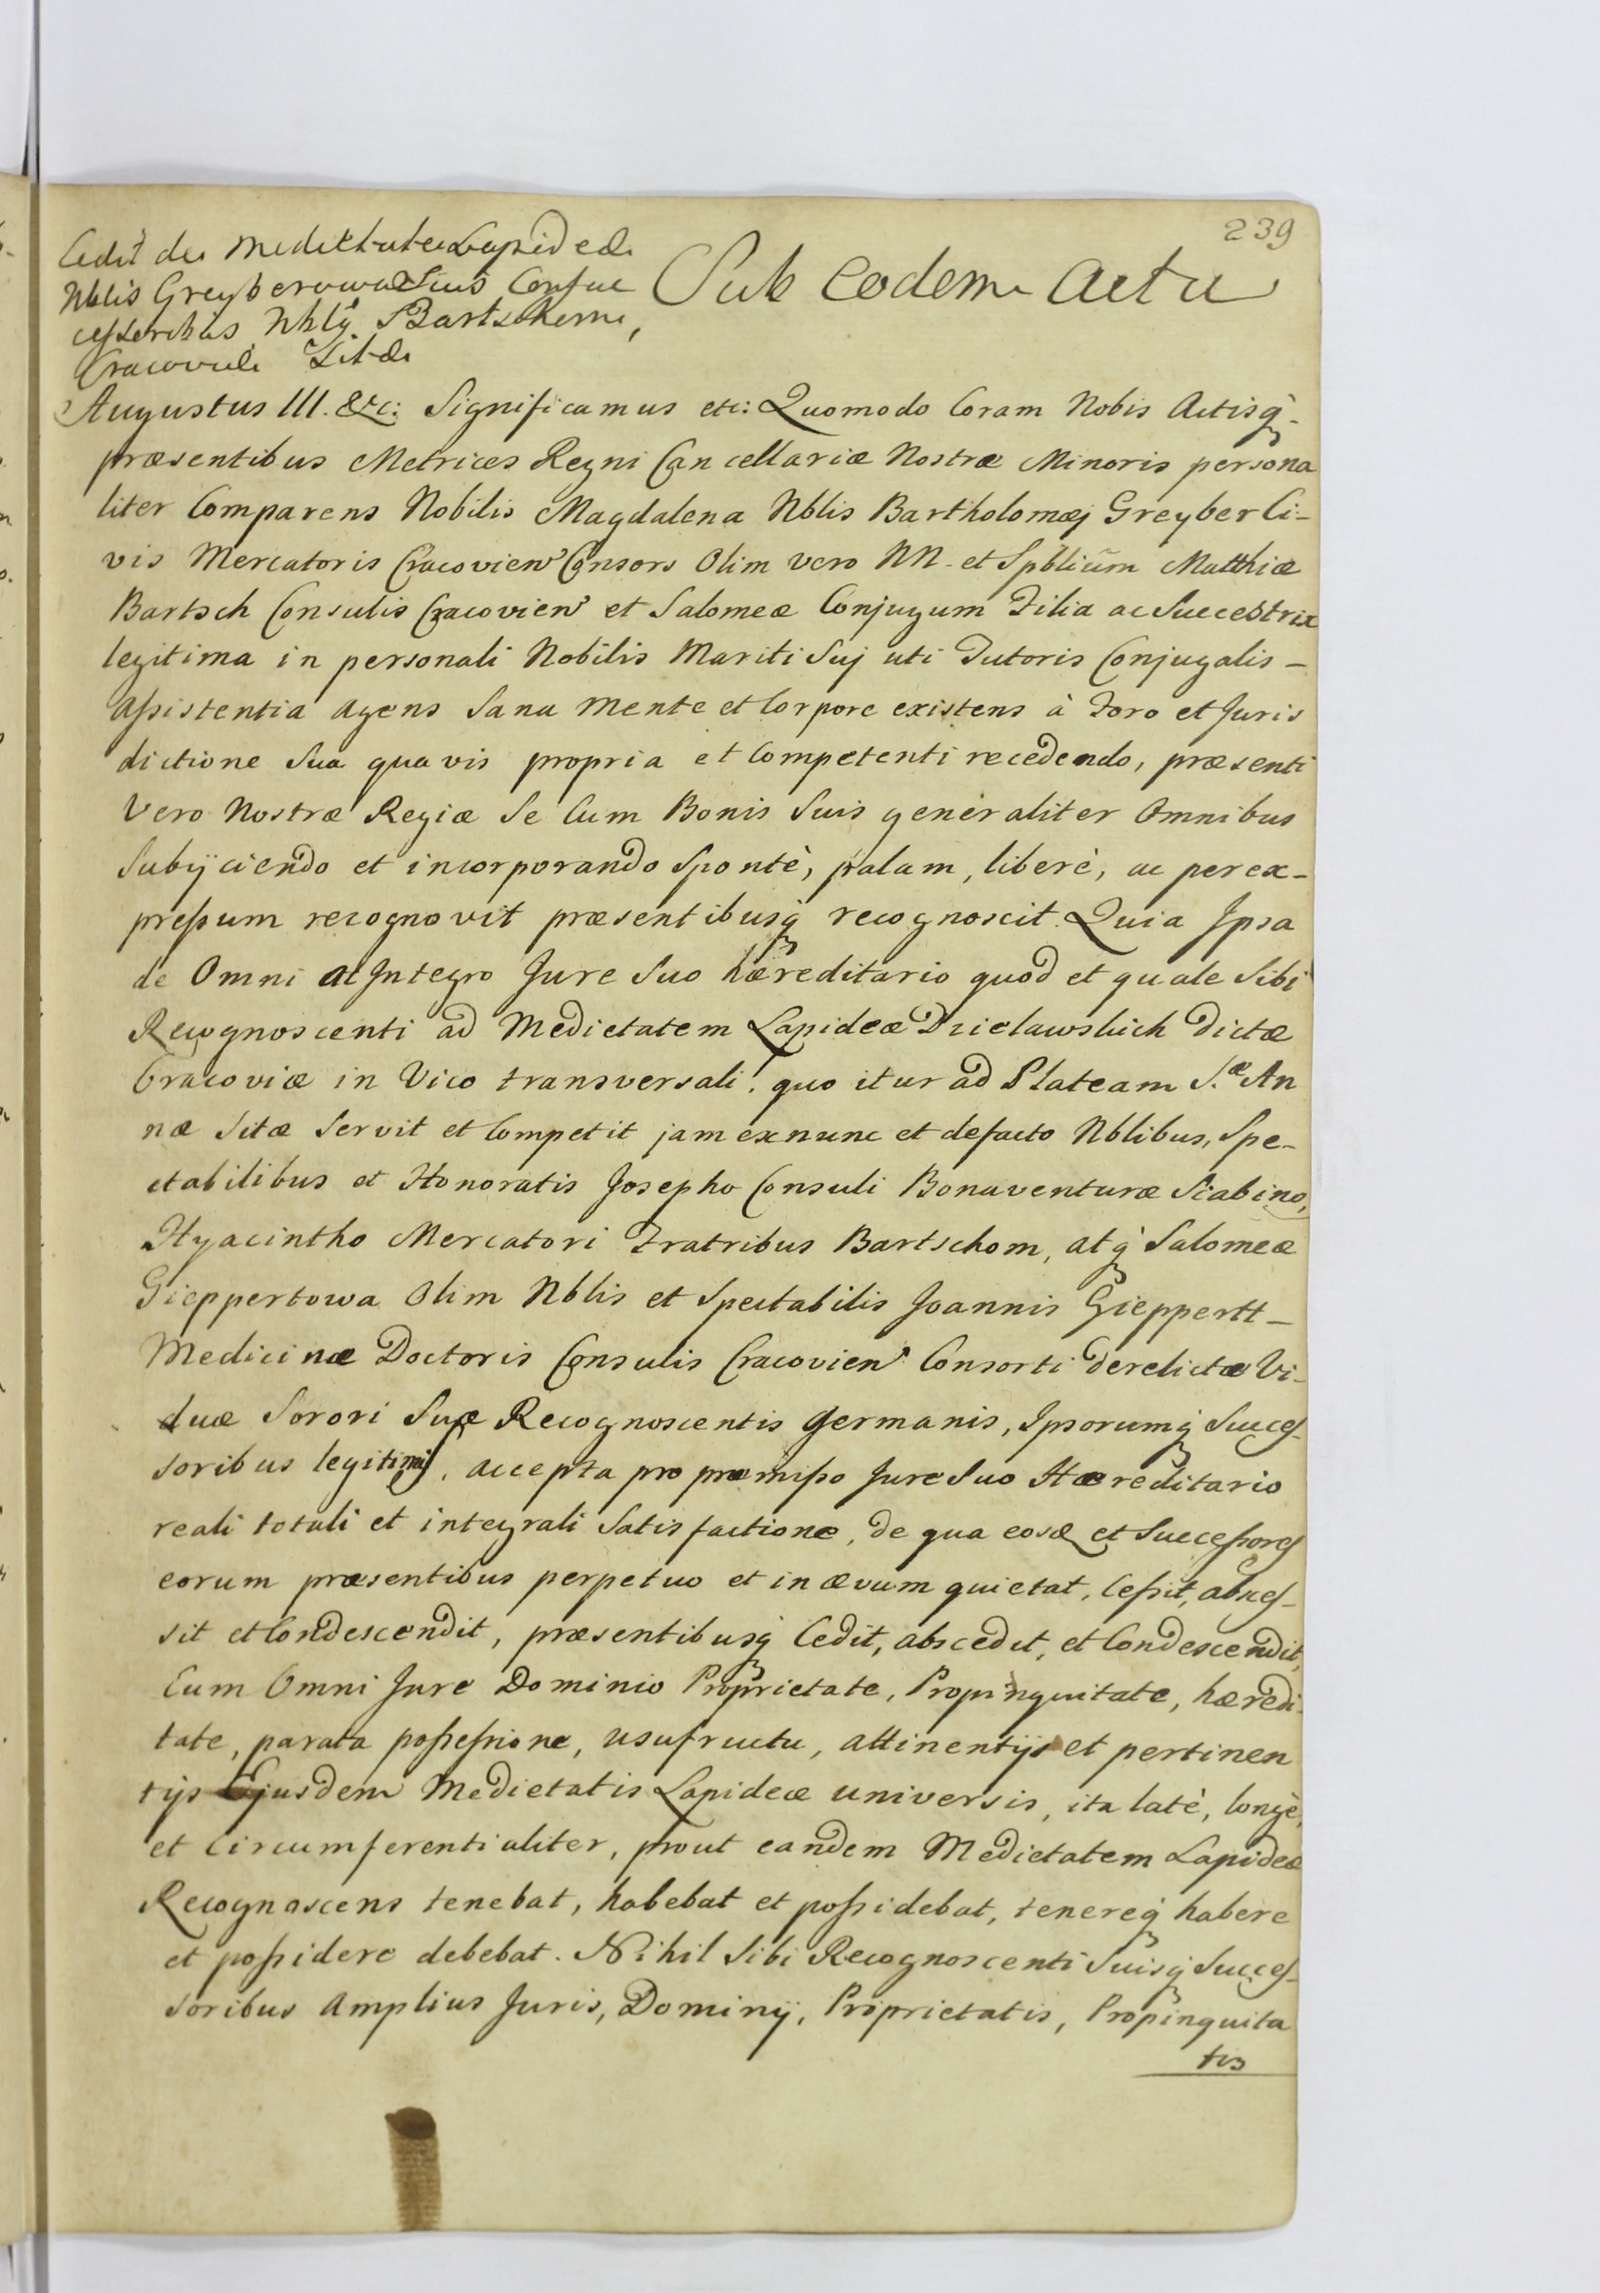 239
Cedit de Medietate Lapideæ
Nblis Greyberowa Suis Consuc
cessoribus Nbly Bartschom,
Cracoviæ Sitæ
Sub Eodem Actu
Augustus III. &c: Significamus etc: Quomodo Coram Nobis Actisq̀
præsentibus Metrices Regni Cancellariæ Nostræ Minoris persona
liter Comparens Nobilis Magdalena Nblis Bartholomæj Greyber Ci-
vis Mercatoris Cracovien Consors Olim vero NN. et Spblium Matthiæ
Bartsch Consulis Cracovien et Salomeæ Conjugum Filia ac Succestrix
legitima in personali Nobilis Mariti Suj uti Tutoris Conjugalis –
Assistentia Agens Sana Mente et Corpore existens à Foro et Juris
dictione Sua quavis propria et Competenti recedendo, præsenti
Vero Nostræ Regiæ Se Cum Bonis Suis generaliter Omnibus
Subijciendo et incorporando Spontè, palam, liberè, ac per ex-
pressum recognovit præsentibusq̀ recognoscit. Quia Ipsa
de Omni at Integro Jure Suo hæreditario quod et quale Sibi
Recognoscenti ad Medietatem Lapideæ Dzielawskich Dictæ
Cracoviæ in Vico transversali, quo itur ad Plateam S.æ An
næ Sitæ Servit et Competit jam ex nunc et defacto Nblibus, Spe-
ctabilibus et Honoratis Josepho Consuli Bonaventuræ Scabino,
Hyacintho Mercatori Fratribus Bartschom, atq̀ Salomeæ
Gieppertowa Olim Nblis et Spectabilis Joannis Gieppertt –
Medicinæ Doctoris Consulis Cracovien Consorti derelictæ Vi-
duæ Sorori Suæ Recognoscentis Germanis, Ipsorumq̀ Succes-
soribus legitimis, accepta pro præmisso Jure Suo Hæreditario
reali totali et integrali Satisfactione, de qua eosq et Successores
eorum præsentibus perpetuo et in ævum quietat, Cessit, absces-
sit et Condescendit, præsentibusq̀ Cedit, abscedit, et Condescendit,
Cum Omni Jure Dominio Proprietate, Propinquitate, hæredi-
tate, parata possessione, usufructu, attinentijs et pertinen
tijs Ejusdem Medietatis Lapideæ universis, ita latè, longè,
et Circumferentialiter, prout eandem Medietatem Lapideæ
Recognoscens tenebat, habebat et possidebat, tenereq̀ habere
et possidere debebat. Nihil Sibi Recognoscenti Suisq̀ Succes-
soribus Amplius Juris, Dominij, Proprietatis, Propinquita
tis